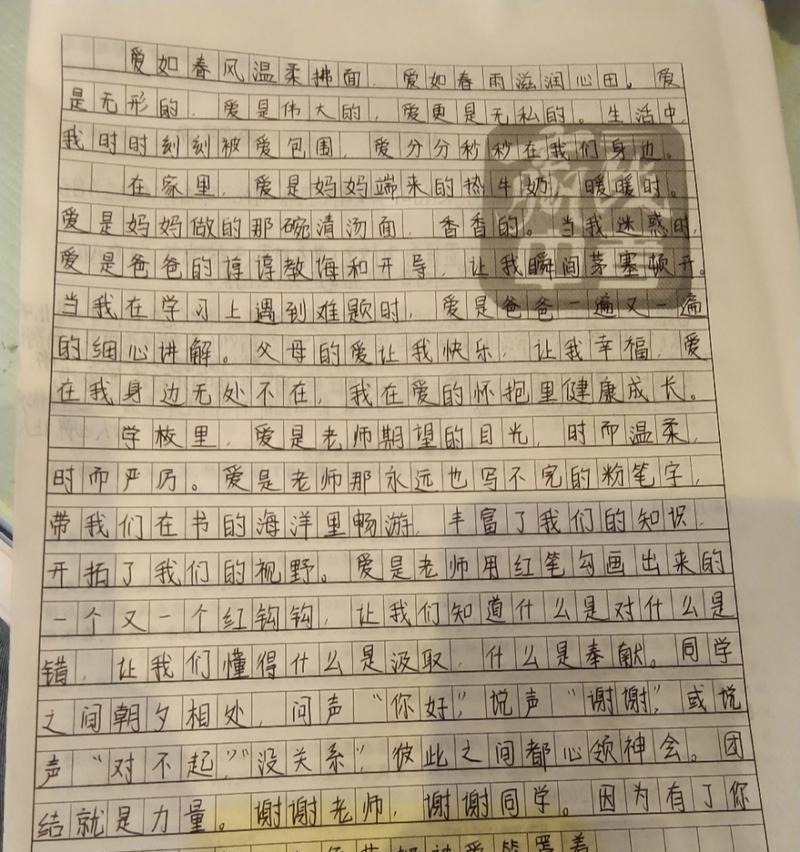 爱如春风温柔拂面，爱如春雨滋润心田。爱
是无形的，爱是伟大的，爱更是无私的。生活中，
我时时刻刻被爱包围，爱分分秒秒在我们身边。
在家里，爱是妈妈端来的热牛奶，暖暖时。
爱是妈妈做的那碗清汤面，香香的。当我迷惑时，
爱是爸爸的谆谆教诲和开导，让我瞬间茅塞顿开。
当我在学习上遇到难题时，爱是爸爸一遍又一遍
的细心讲解。父母的爱让我快乐，让我幸福，爱
在我身边无处不在，我在爱的怀抱里健康成长。
学校里，爱是老师期望的目光，时而温柔，
时而严厉。爱是老师那永远也写不完的粉笔字，
带我们在书的海洋里畅游，丰富了我们的知识，
开拓了我们的视野。爱是老师用红笔勾画出来的
一个又一个红钩钩，让我们知道什么是对什么是
错，让我们懂得什么是汲取，什么是奉献。同学
之间朝夕相处，问声“你好”，说声“谢谢”，或说
声“对不起”“没关系”，彼此之间都心领神会。团
结就是力量。谢谢老师，谢谢同学。因为有了你